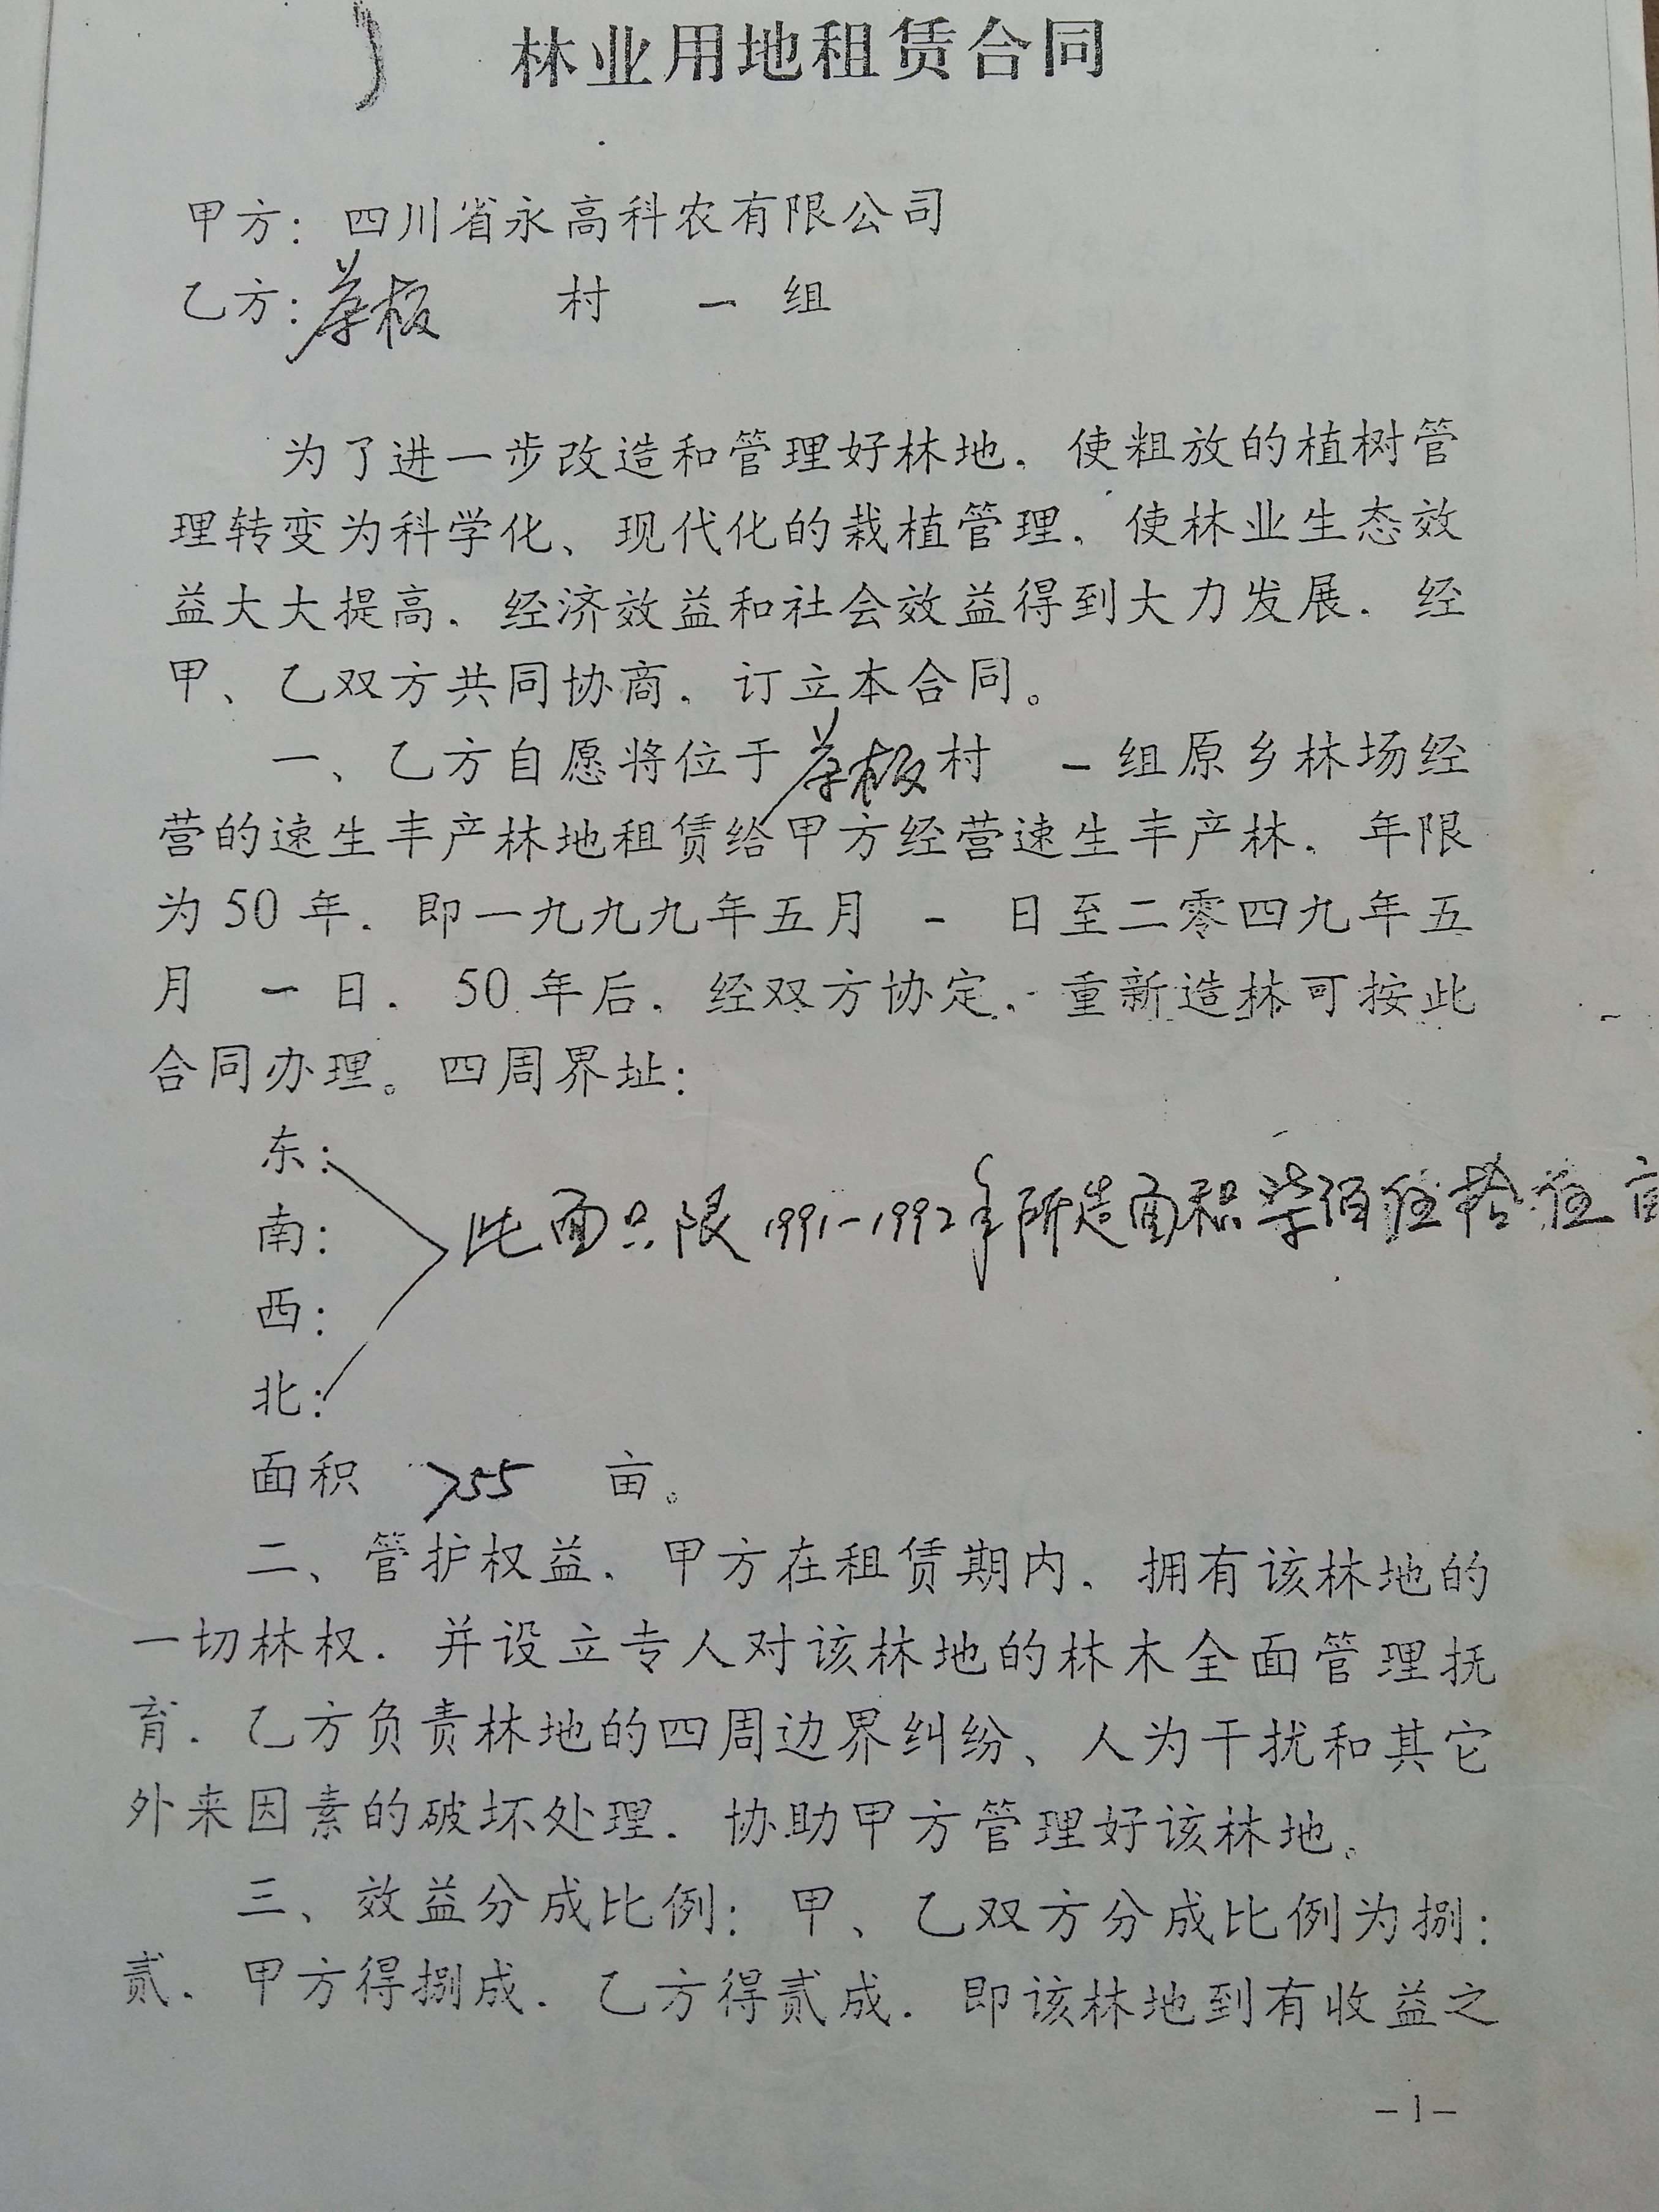 林业用地租赁合同
甲方：四川省永高科农有限公司
乙方：板 村 一 组
为了进一步改造和管理好林地，使粗放的植树管
理转变为科学化、现代化的栽植管理，使林业生态效
益大大提高，经济效益和社会效益得到大力发展，经
甲、乙双方共同协商，订立本合同。
一、乙方自愿将位于板村 一组原乡林场经
营的速生丰产林地租赁给甲方经营速生丰产林，年限
为50年，即一九九九年五月 一 日至二零四九年五
月 一 日，50年后，经双方协定，重新造林可按此
合同办理。四周界址：
东：
南：
此面只限1991-1992年所造面积柒佰伍拾伍亩
西：
北：
面积 755 亩。
二、管护权益，甲方在租赁期内，拥有该林地的
一切林权，并设立专人对该林地的林木全面管理抚
育，乙方负责林地的四周边界纠纷、人为干扰和其它
外来因素的破坏处理，协助甲方管理好该林地。
三、效益分成比例：甲、乙双方分成比例为捌：
贰，甲方得捌成，乙方得贰成，即该林地到有收益之
-1-